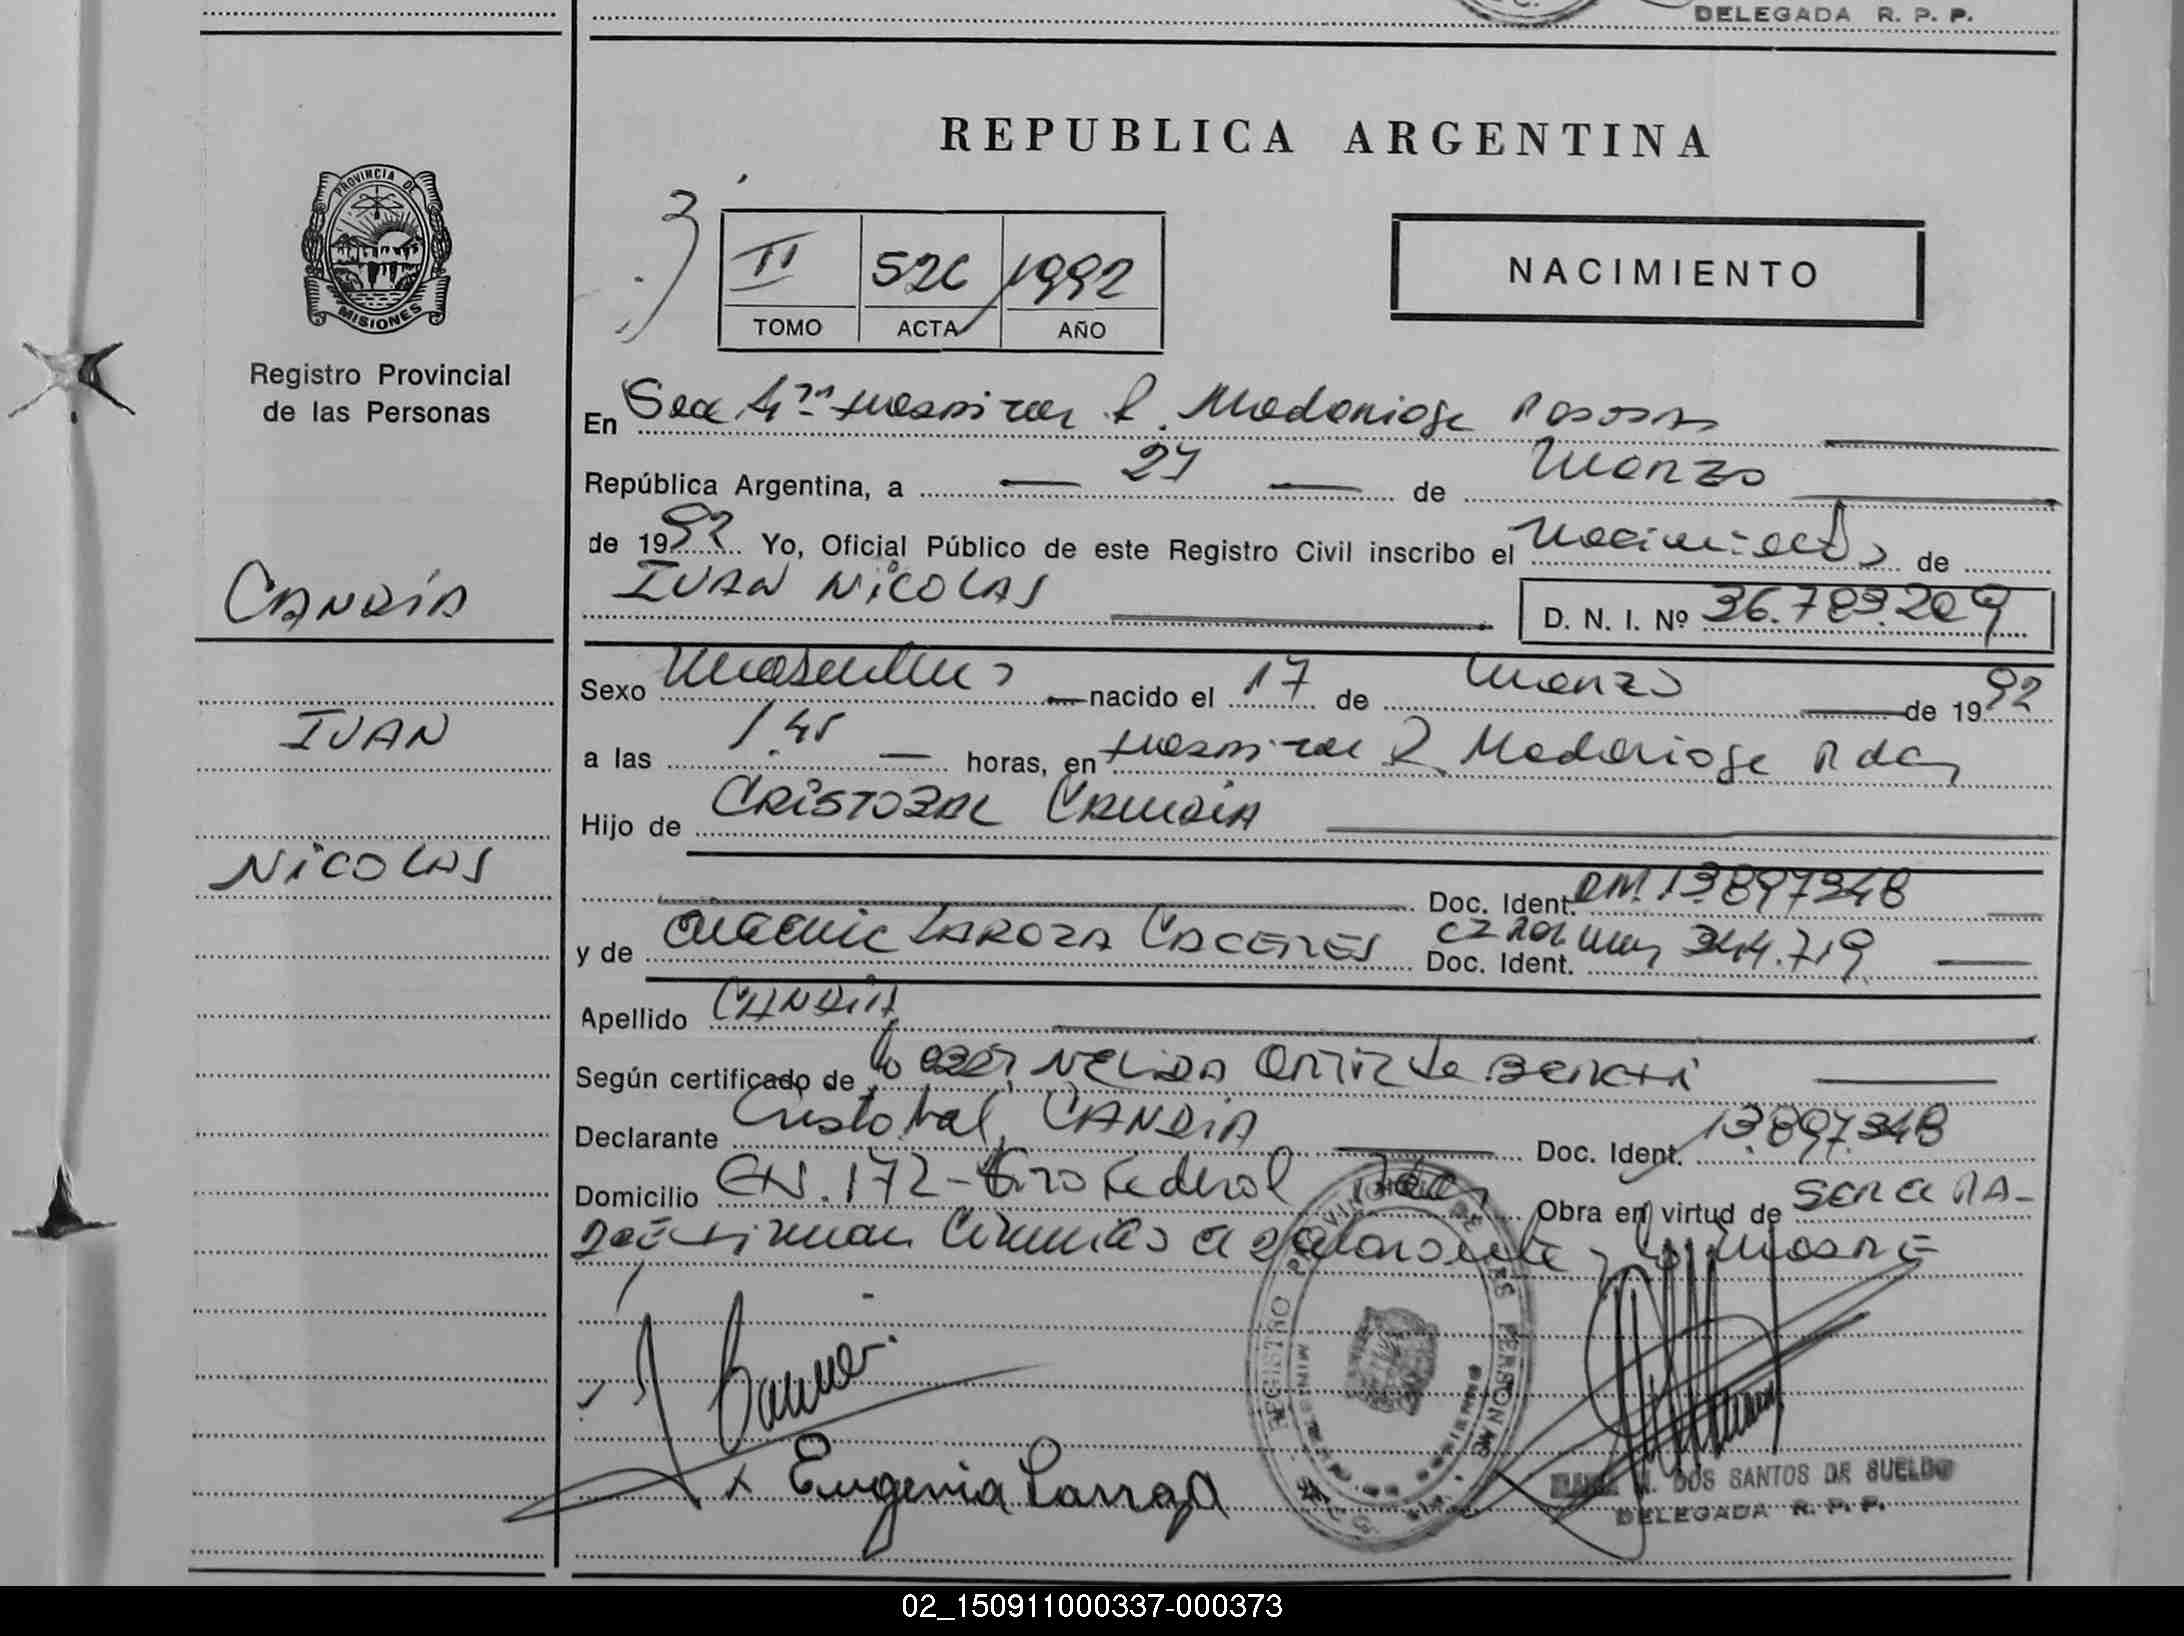 DELEGADA R. P. P.
REPUBLICA ARGENTINA
PROVINCIA DE
MISIONES
Registro Provincial
de las Personas
II 526 1992
TOMO ACTA AÑO
NACIMIENTO
En Sec 4ta Hospital R. Madariaga Posadas
República Argentina, a 27 de Marzo
de 1992 Yo, Oficial Público de este Registro Civil inscribo el nacimiento de
IVAN NICOLAS D. N. I. Nº 36.783.209
CANDÍA
IVAN
NICOLAS
Sexo Masculino nacido el 17 de Marzo de 1992
a las 1.45 horas, en Hospital R. Madariaga Pdas
Hijo de CRISTOBAL CANDIA
Doc. Ident. DNI. 13.897348
y de LAROZA CACERES Doc. Ident. 344.719
Apellido CANDIA
Según certificado de NELIDA ORTIZ de
Declarante Cristobal CANDIA Doc. Ident. 13.897.348
Domicilio CH. 172 - Tiro Federal Pdas Obra en virtud de
REGISTRO PROVINCIAL DE LAS PERSONAS
x Eugenia Larroza
M. DOS SANTOS DE SUELDO
DELEGADA R. P. P.
02_150911000337-000373